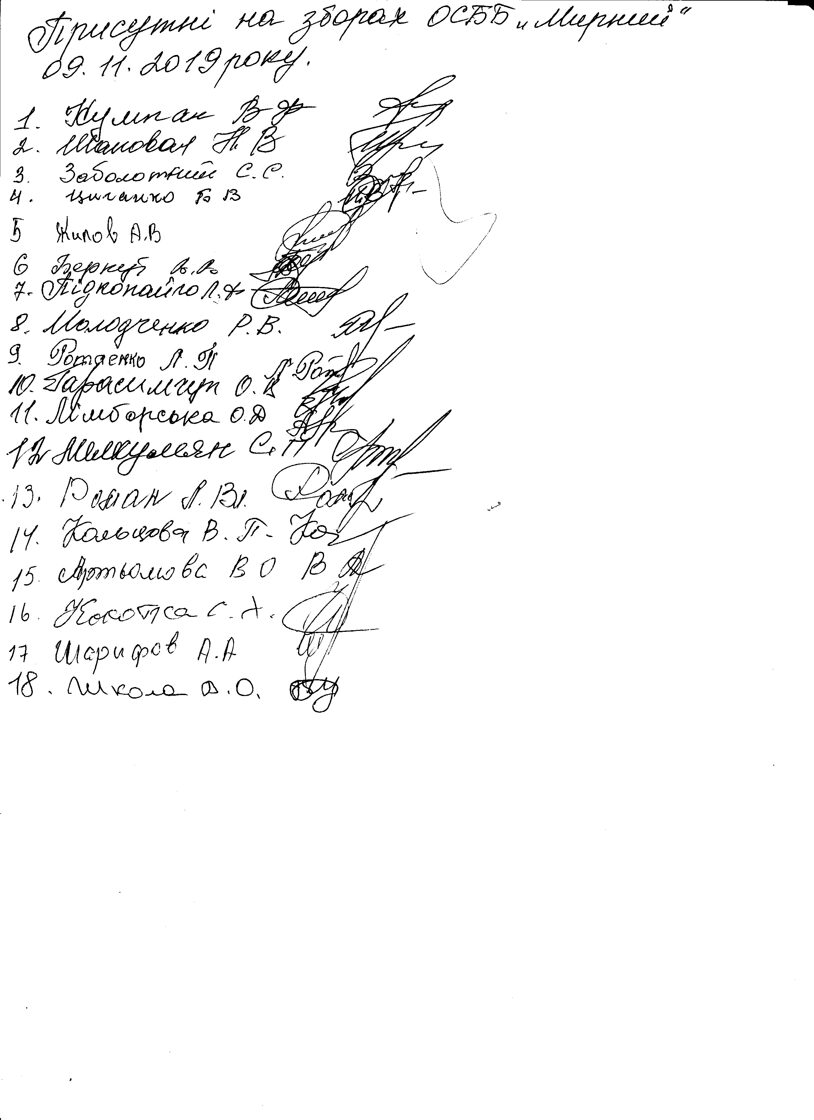 Присутні на зборах ОСББ „Мирний“
09.11.2019 року.
1. Кумпан В Ф
2. Шаповал Н. В
3. Заболотний С. С.
4. Циганко Б В
5 Жилов А.В
6 Беркут
7. Підкопайло Л.
8. Молодченко Р. В.
9. Л. П
10. Гарасимчук О.
11. Лімборська О.Д
12 Мелкумян С.
13. Роман Л. Вл.
14. Кальцова В. П.
15. Артьомова В О
16.
17 Шарифов А.А
18. Школа Д.О.